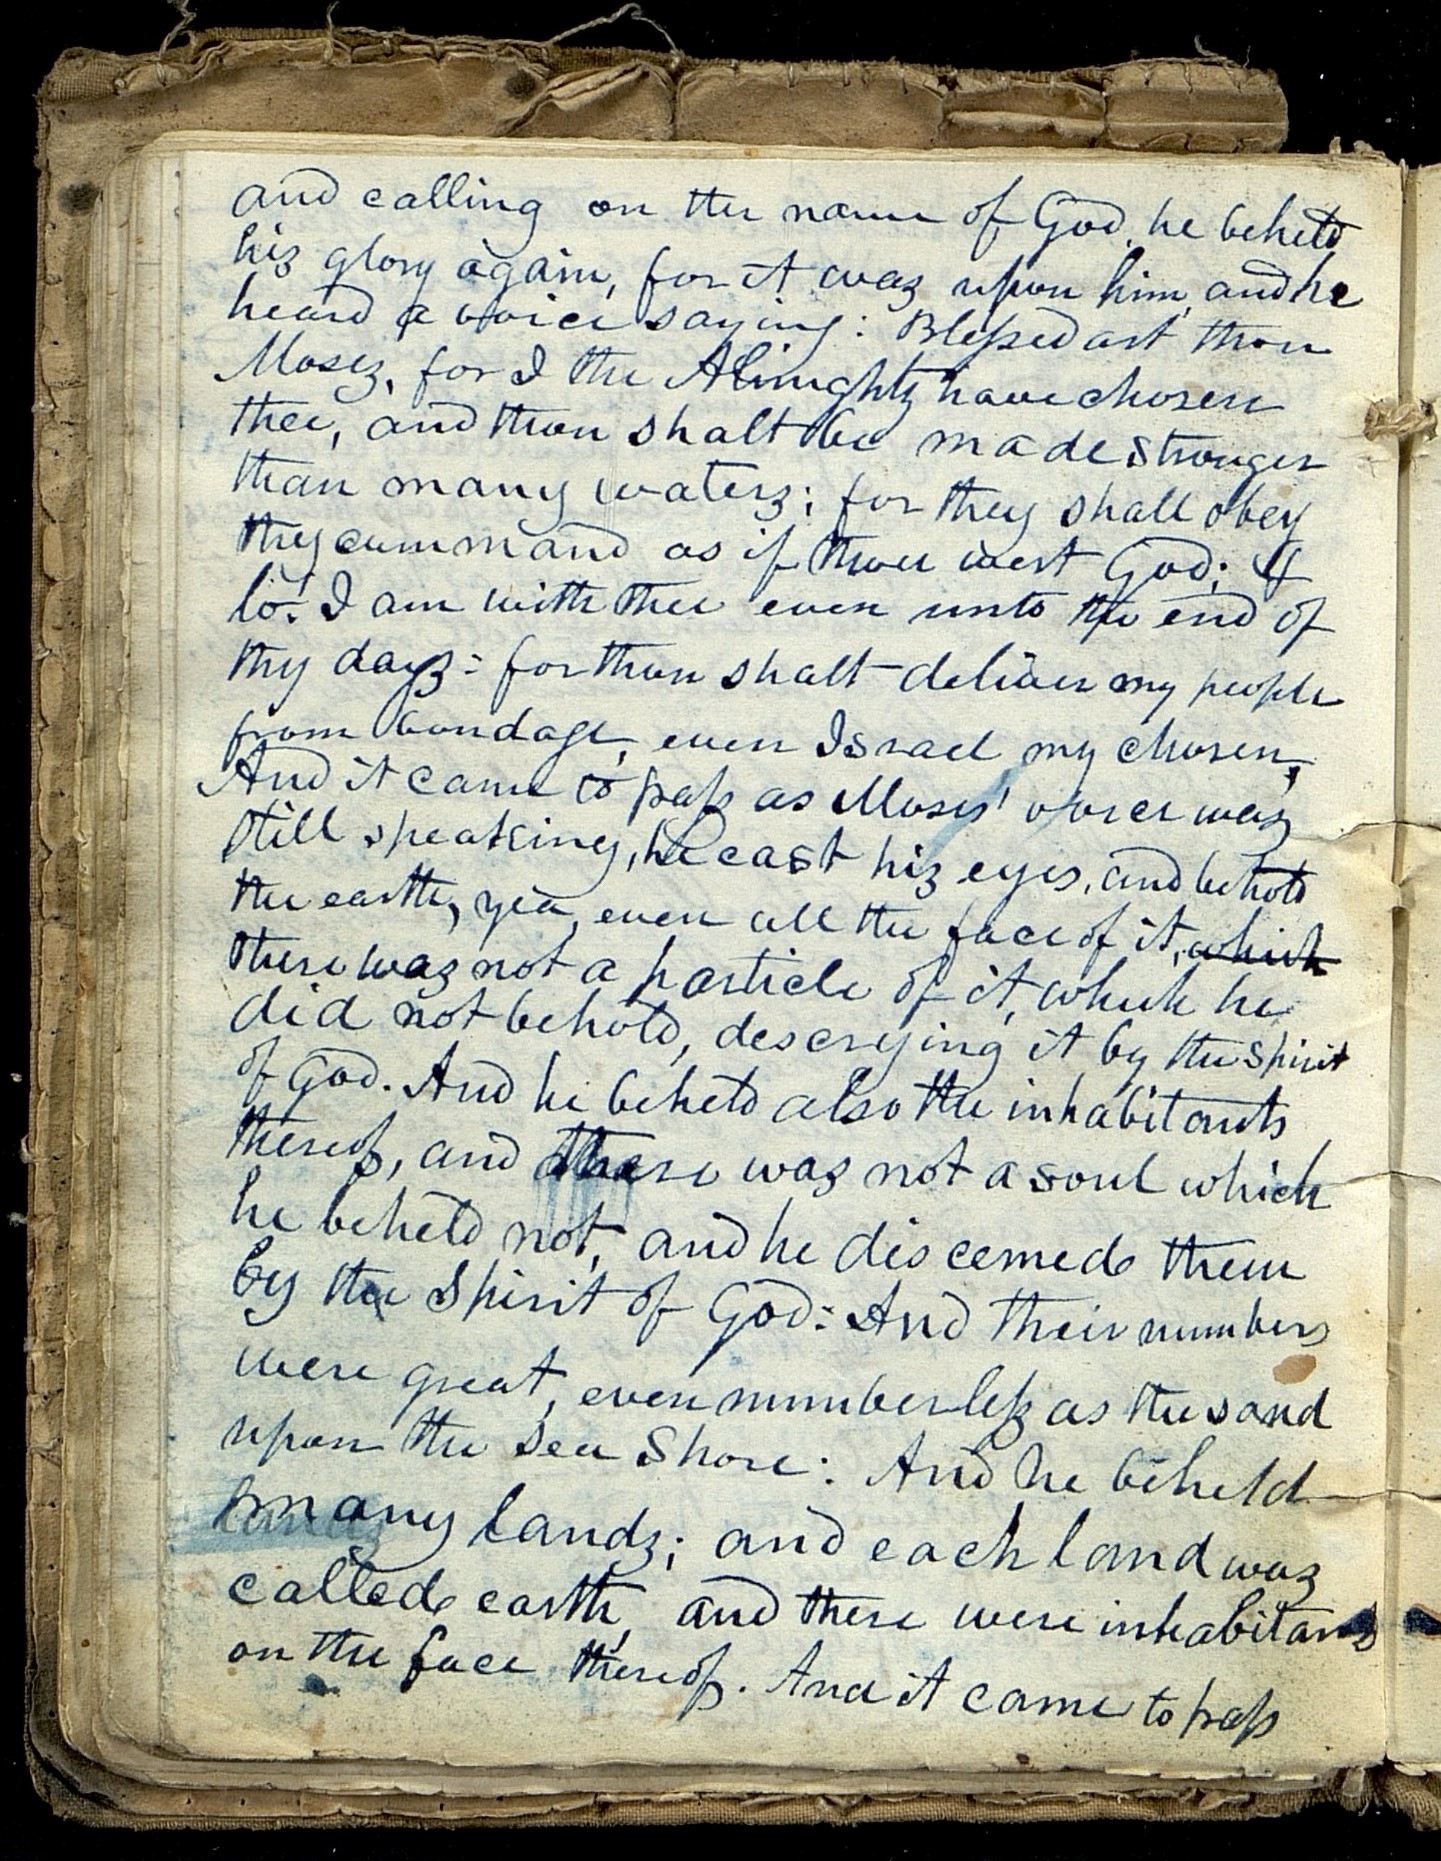 and calling on the name of God, he beheld
his glory again, for it was upon him, and he
heard a voice saying: Blessed art thou
Moses, for I the Almighty have chosen
thee, and thou shalt be made stronger
than many waters; for they shall obey
thy command as if thou wert God; &
lo! I am with thee even unto the end of
thy days: for thou shalt deliver my people
from bondage, even Israel my chosen,
And it came to pass as Moses' voice was
still speaking, he cast his eyes, and behold
the earth, yea, even all the face of it, which
there was not a particle of it, which he
did not behold, descrying it by the spirit
of God. And he beheld also the inhabitants
thereof, and there was not a soul which
he beheld not, and he discerned them
by the Spirit of God: And their numbers
were great, even numberless as the sand
upon the sea Shore: And he beheld
many lands; and each land was
called earth, and there were inhabitants
on the face thereof. And it came to pass